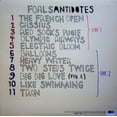 FOALS ANTIDOTES
1 THE FRENCH OPEN
2 CASSIUS
3 RED SOCKS PUGIE
4 OLYMPIC AIRWAYS
5 ELECTRIC BLOOM
6 BALLOONS
7 HEAVY WATER
8 TWO STEPS TWICE
9 BIG BIG LOVE (FIG. 2)
10 LIKE SWIMMING
11 TRON
SIDE 1